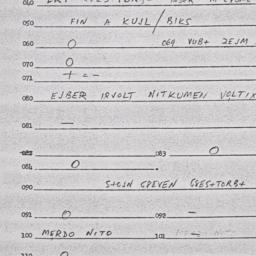 050 FIN A KUJL/BIKS
060 O 069 VUB+ ZEJM
070 O
071 + = -
080 EJBER IRVOLT NITKUMEN VOLTIX
081 —
082 083 O
084 O
090 S+OJN GPEVEN GVES+TORB+
091 O 092 —
100 MERDO NITO 101
110 O